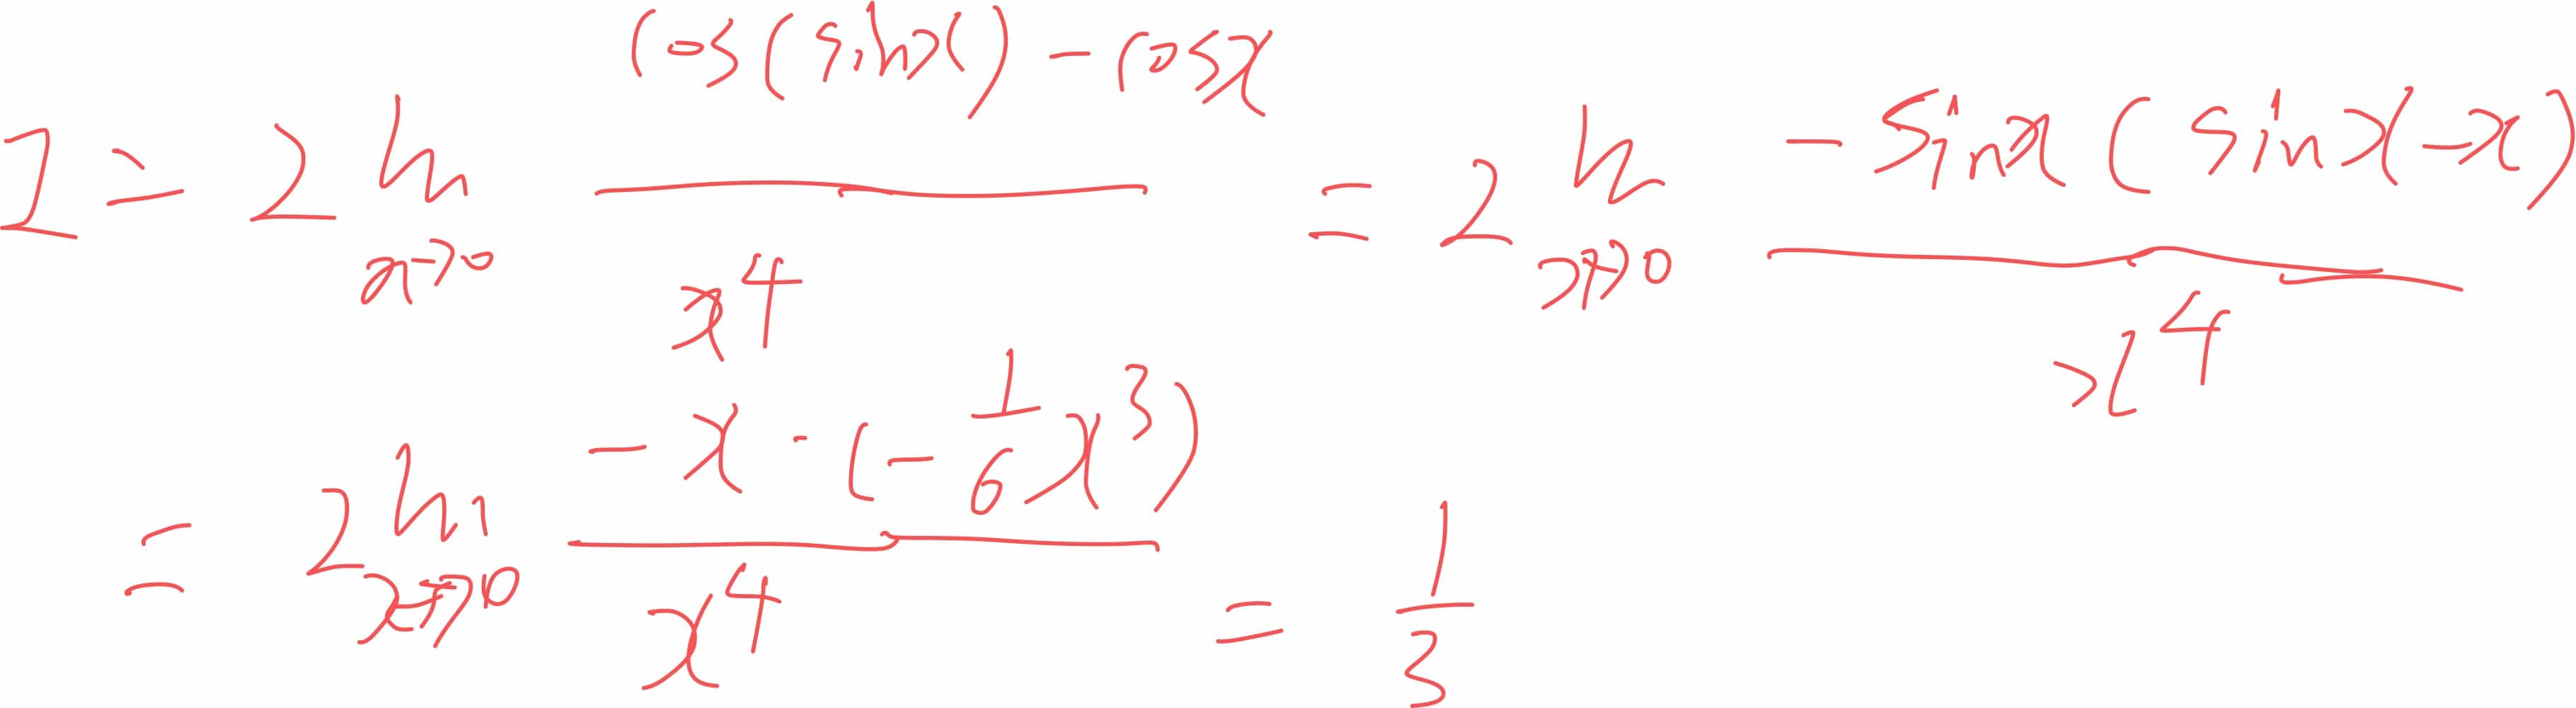 I = 2 lim_{x→0} \frac{cos(sinx) - cosx}{x^4} = 2 lim_{x→0} \frac{-sinx(sinx-x)}{x^4}
= 2 lim_{x→0} \frac{-x·(-\frac{1}{6}x^3)}{x^4} = \frac{1}{3}